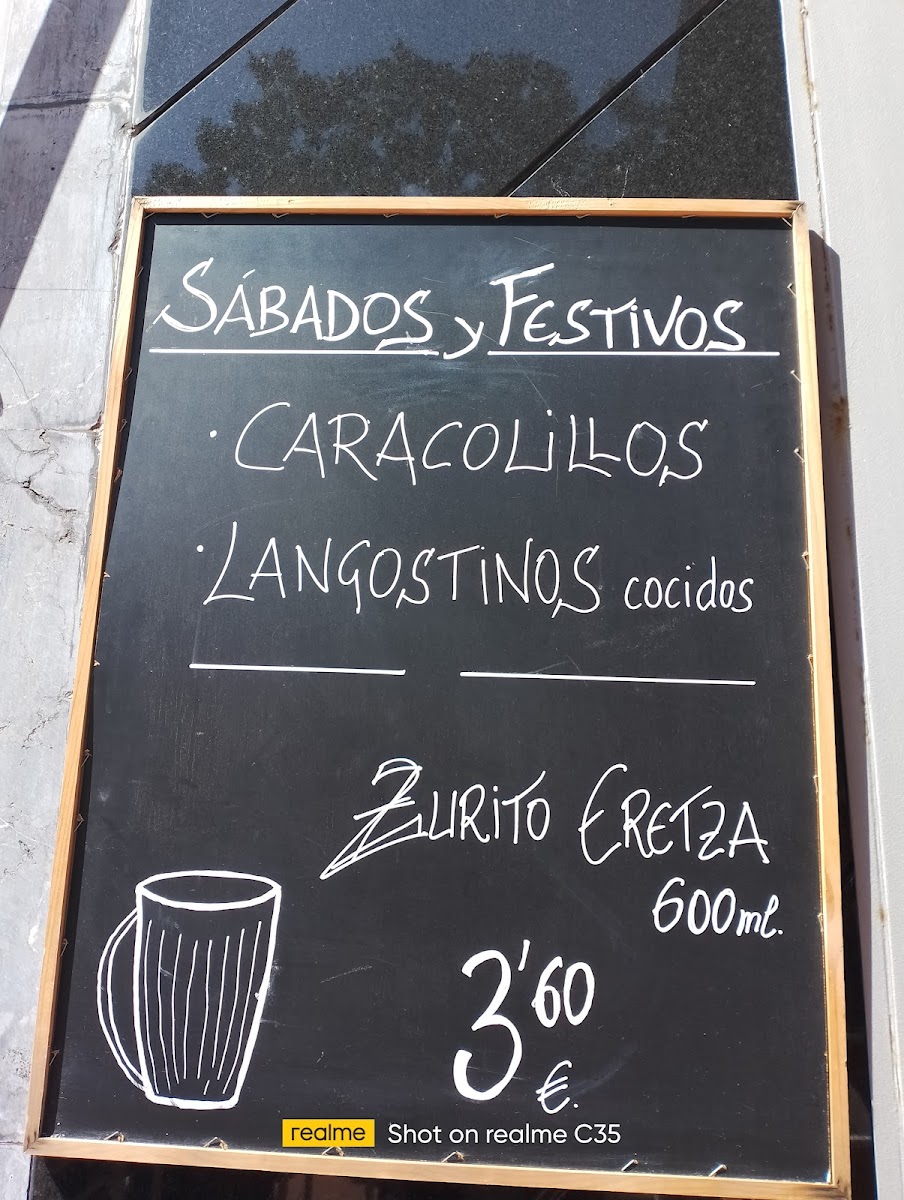 SÁBADOS y FESTIVOS
· CARACOLILLOS
· LANGOSTINOS cocidos
ZURITO ERETZA
600ml.
3'60
€.
realme Shot on realme C35